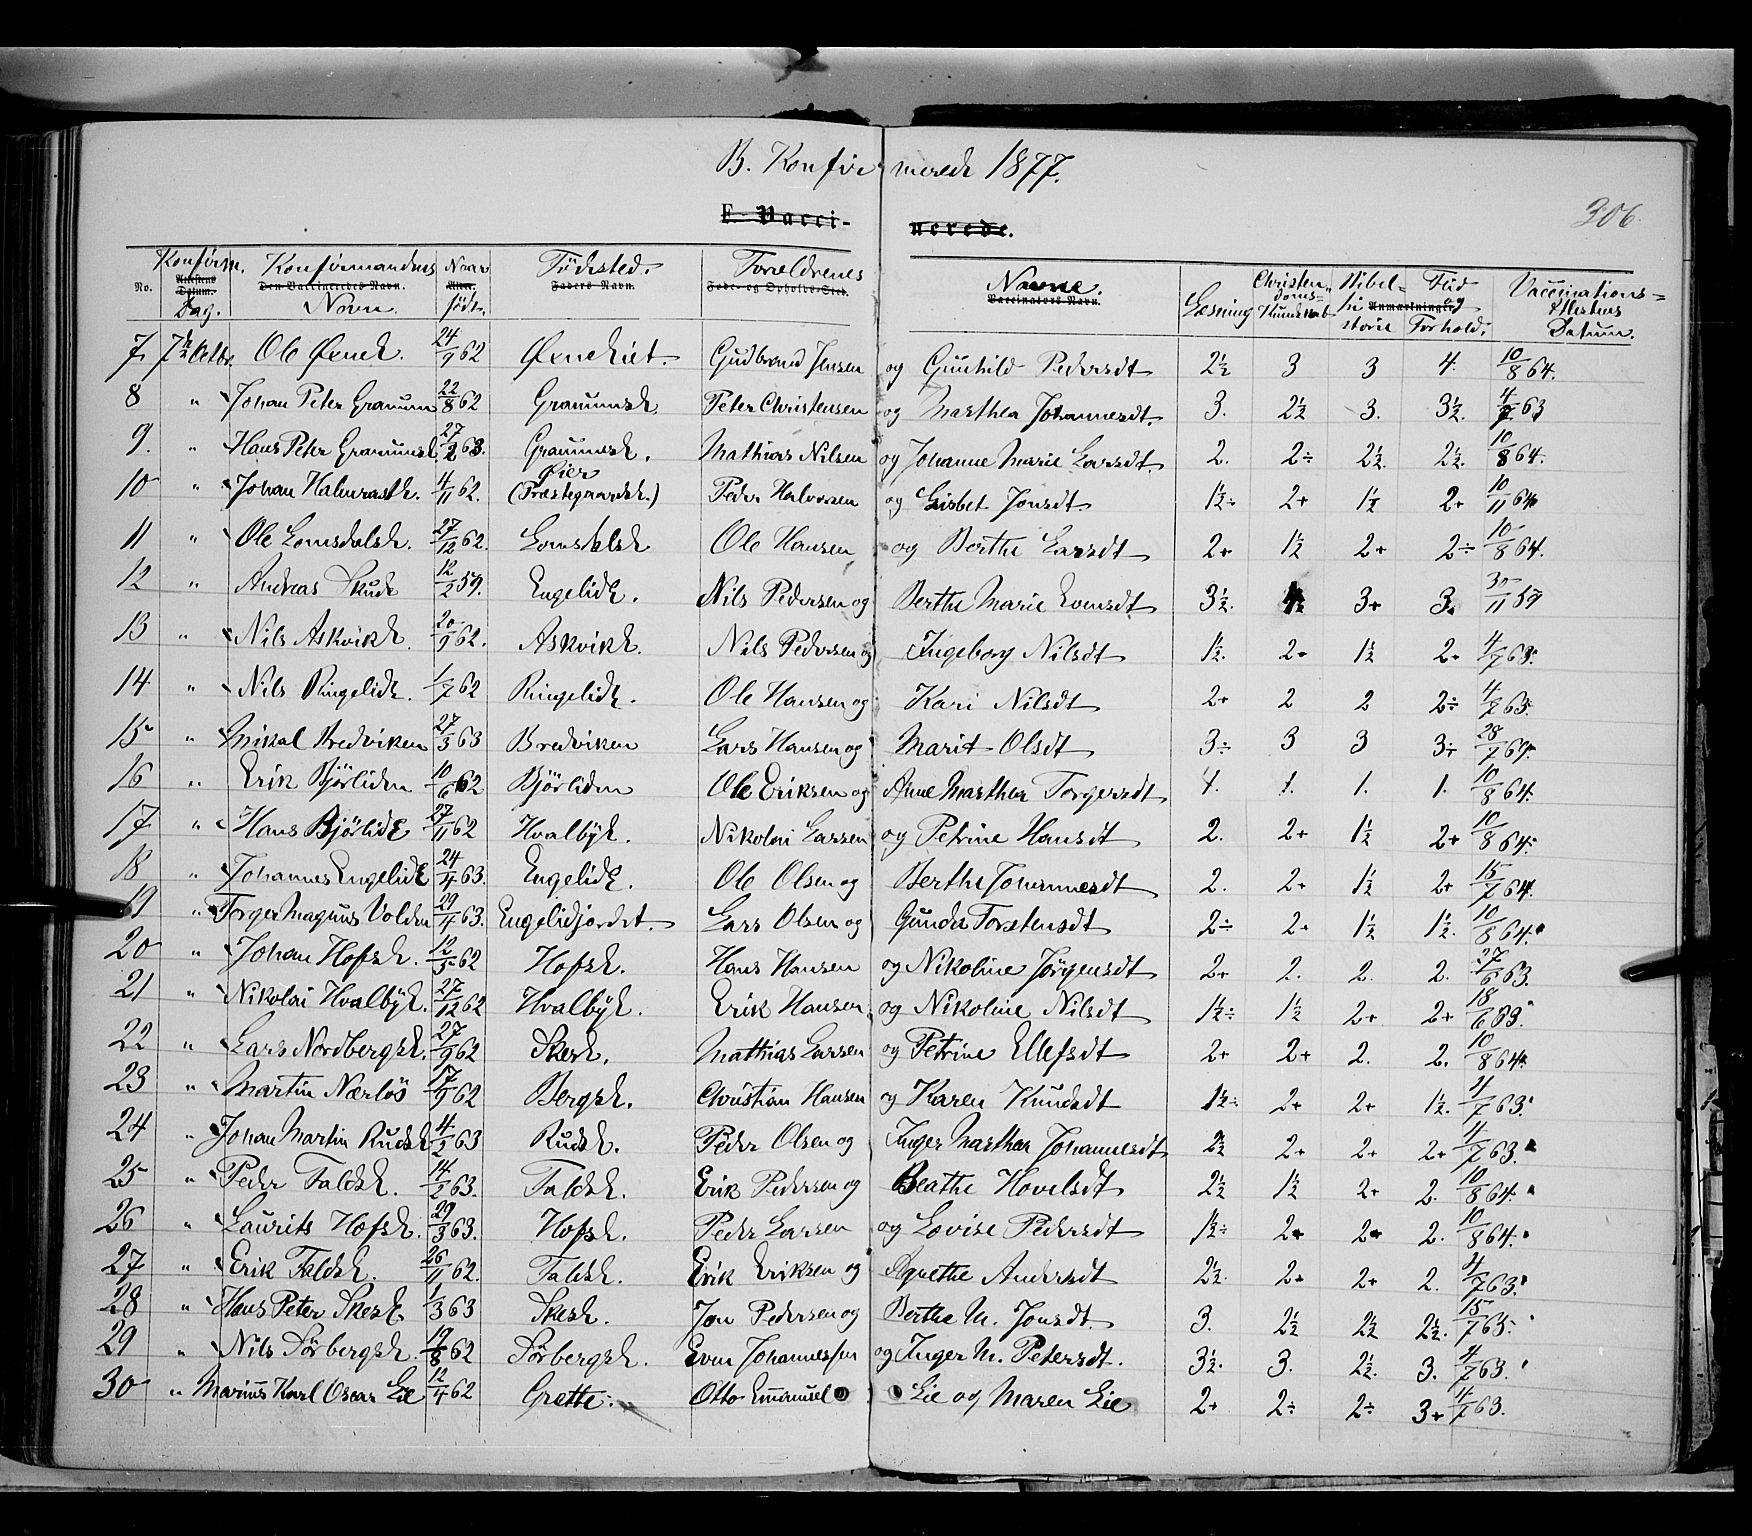 B. Konfir merede 1877.
E. Vacci- nerede.
306.
No. Konfirm. Dag. Attestens Datum. Konfirmandnes Navn. Den Vaccineredes Navn. Naar født. Alder. Fødested. Faders Navn. Forældrenes Føde- og Opholds-Sted. Navne. Vaccinators Navn. Læsning Christendoms- Kundskab Bibelhistorie Flid og Forhold. Anmærkninger Vaccinations- Attestens Datum.
7. 7de Octbr. Ole Øenek. 24/9 62 Øenekiet. Gudbrand Jensen og Gunhild Pedersdt 2½ 3 3 4. 10/8 64.
8 " Johan Peter Graunum 22/8 62 Graunumsk. Peter Christensen og Marthea Johannesdt. 3. 2½ 3. 3½. 4/7 63
9. " Hans Peter Graunumsk. 27/2 63. Graunumsk. Mathias Nilsen og Johanne Marie Larsdt. 2. 2÷ 2½. 2½. 10/8 64.
10 " Johan Halmrastk. 4/11 62. Øier (Præstegaardsk.) Peder Halvorsen og Lisbet Jonsdt 1½÷ 2+ 1½ 2+ 10/11 64
11 " Ole Lomsdalsk. 27/12 62. Lomsdalsk Ole Hansen og Berthe Larsdt 2+ 1½ 2+ 2÷ 10/8 64.
12 " Andreas Skude 12/2 59. Engelidk. Nils Pedersen og Berthe Marie Evensdt 3½. 3+ 3. 30/11 59
13 " Nils Askvikk. 20/9 62. Askvikk. Nils Pedersen og Ingeborg Nilsdt 1½. 2+ 1½ 2+ 4/7 63.
14 " Nils Ringelidk. 1/7 62 Ringelidk. Ole Hansen og Kari Nilsdt 2+ 2 2 2÷ 4/7 63.
15 " Mikal Bredviken 27/3 63 Bredviken Lars Hansen og Marit Olsdt 3÷ 3 3 3+ 28/7 69.
16 " Erik Bjørliden 10/6 62 Bjørliden Ole Eriksen og Anne Marthea Torgersdt 1. 1. 1. 1. 10/8 64.
17 " Hans Bjørlidk 27/11 62 Hvalbyk. Nikolai Larsen og Petrine Hansdt 2. 2+ 1½ 2+ 10/8 64.
18 " Johannes Engelidk 24/4 63. Engelidk. Ole Olsen og Berthe Johannesdt 2. 2+ 1½ 2+ 15/7 64.
19 " Torger Magnus Volden 29/4 63. Engelidjordet. Lars Olsen og Gunda Torstensdt 2÷ 2+ 1½ 1½. 10/8 64.
20 " Johan Hofsk. 12/5 62 Hofsk. Hans Hansen og Nikoline Jørgensdt 2+ 2. 2. 2. 27/6 63.
21 " Nikolai Hvalbyk. 27/12 62 Hvalbyk. Erik Hansen og Nikoline Nilsdt 1½÷ 1½ 2+ 2+ 18/6 63.
22 " Lars Nordbergsk. 27/9 62 Skesk. Mathias Larsen og Petrine Ellefsdt 2+ 2+ 2. 2. 10/8 64.
23 " Martin Nærløs 17/9 62 Bergsk. Christian Hansen og Karen Knudsdt 1½÷ 2+ 2+ 1½. 4/7 63.
24 " Johan Martin Rudsk 4/2 63 Rudsk. Peder Olsen og Inger Marthea Johannesdt 2½ 2+ 2+ 2+ 4/7 63.
25 " Peder Faldsk. 14/2 63. Faldsk. Erik Pedersen og Beathe Hovelsdt 2½ 1½ 2+ 2. 10/8 64.
26 " Laurits Hofsk. 29/3 63. Hofsk. Peder Larsen og Lovise Pedersdt 1½÷ 2+ 2+ 2. 10/8 64.
27 " Erik Faldsk. 26/11 62. Faldsk. Erik Eriksen og Agnethe Andersdt 2½. 2+ 2+ 2. 4/7 63.
28 " Hans Peter Skesk 1/3 63 Skesk. Jon Pedersen og Berthe M. Jonsdt. 3. 2½ 2½ 2½. 15/7 65.
29 " Nils Sörbergsk. 19/8 62 Sörbergsk. Even Johannessen og Inger M. Petersdt. 3½. 3. 2½. 3. 4/7 63.
30 " Marinus Karl Oscar Lie 12/4 62 Grætte. Otto Emanuel Lie og Maren Lie 2+ 2÷ 2÷ 3+ 4/7 63.